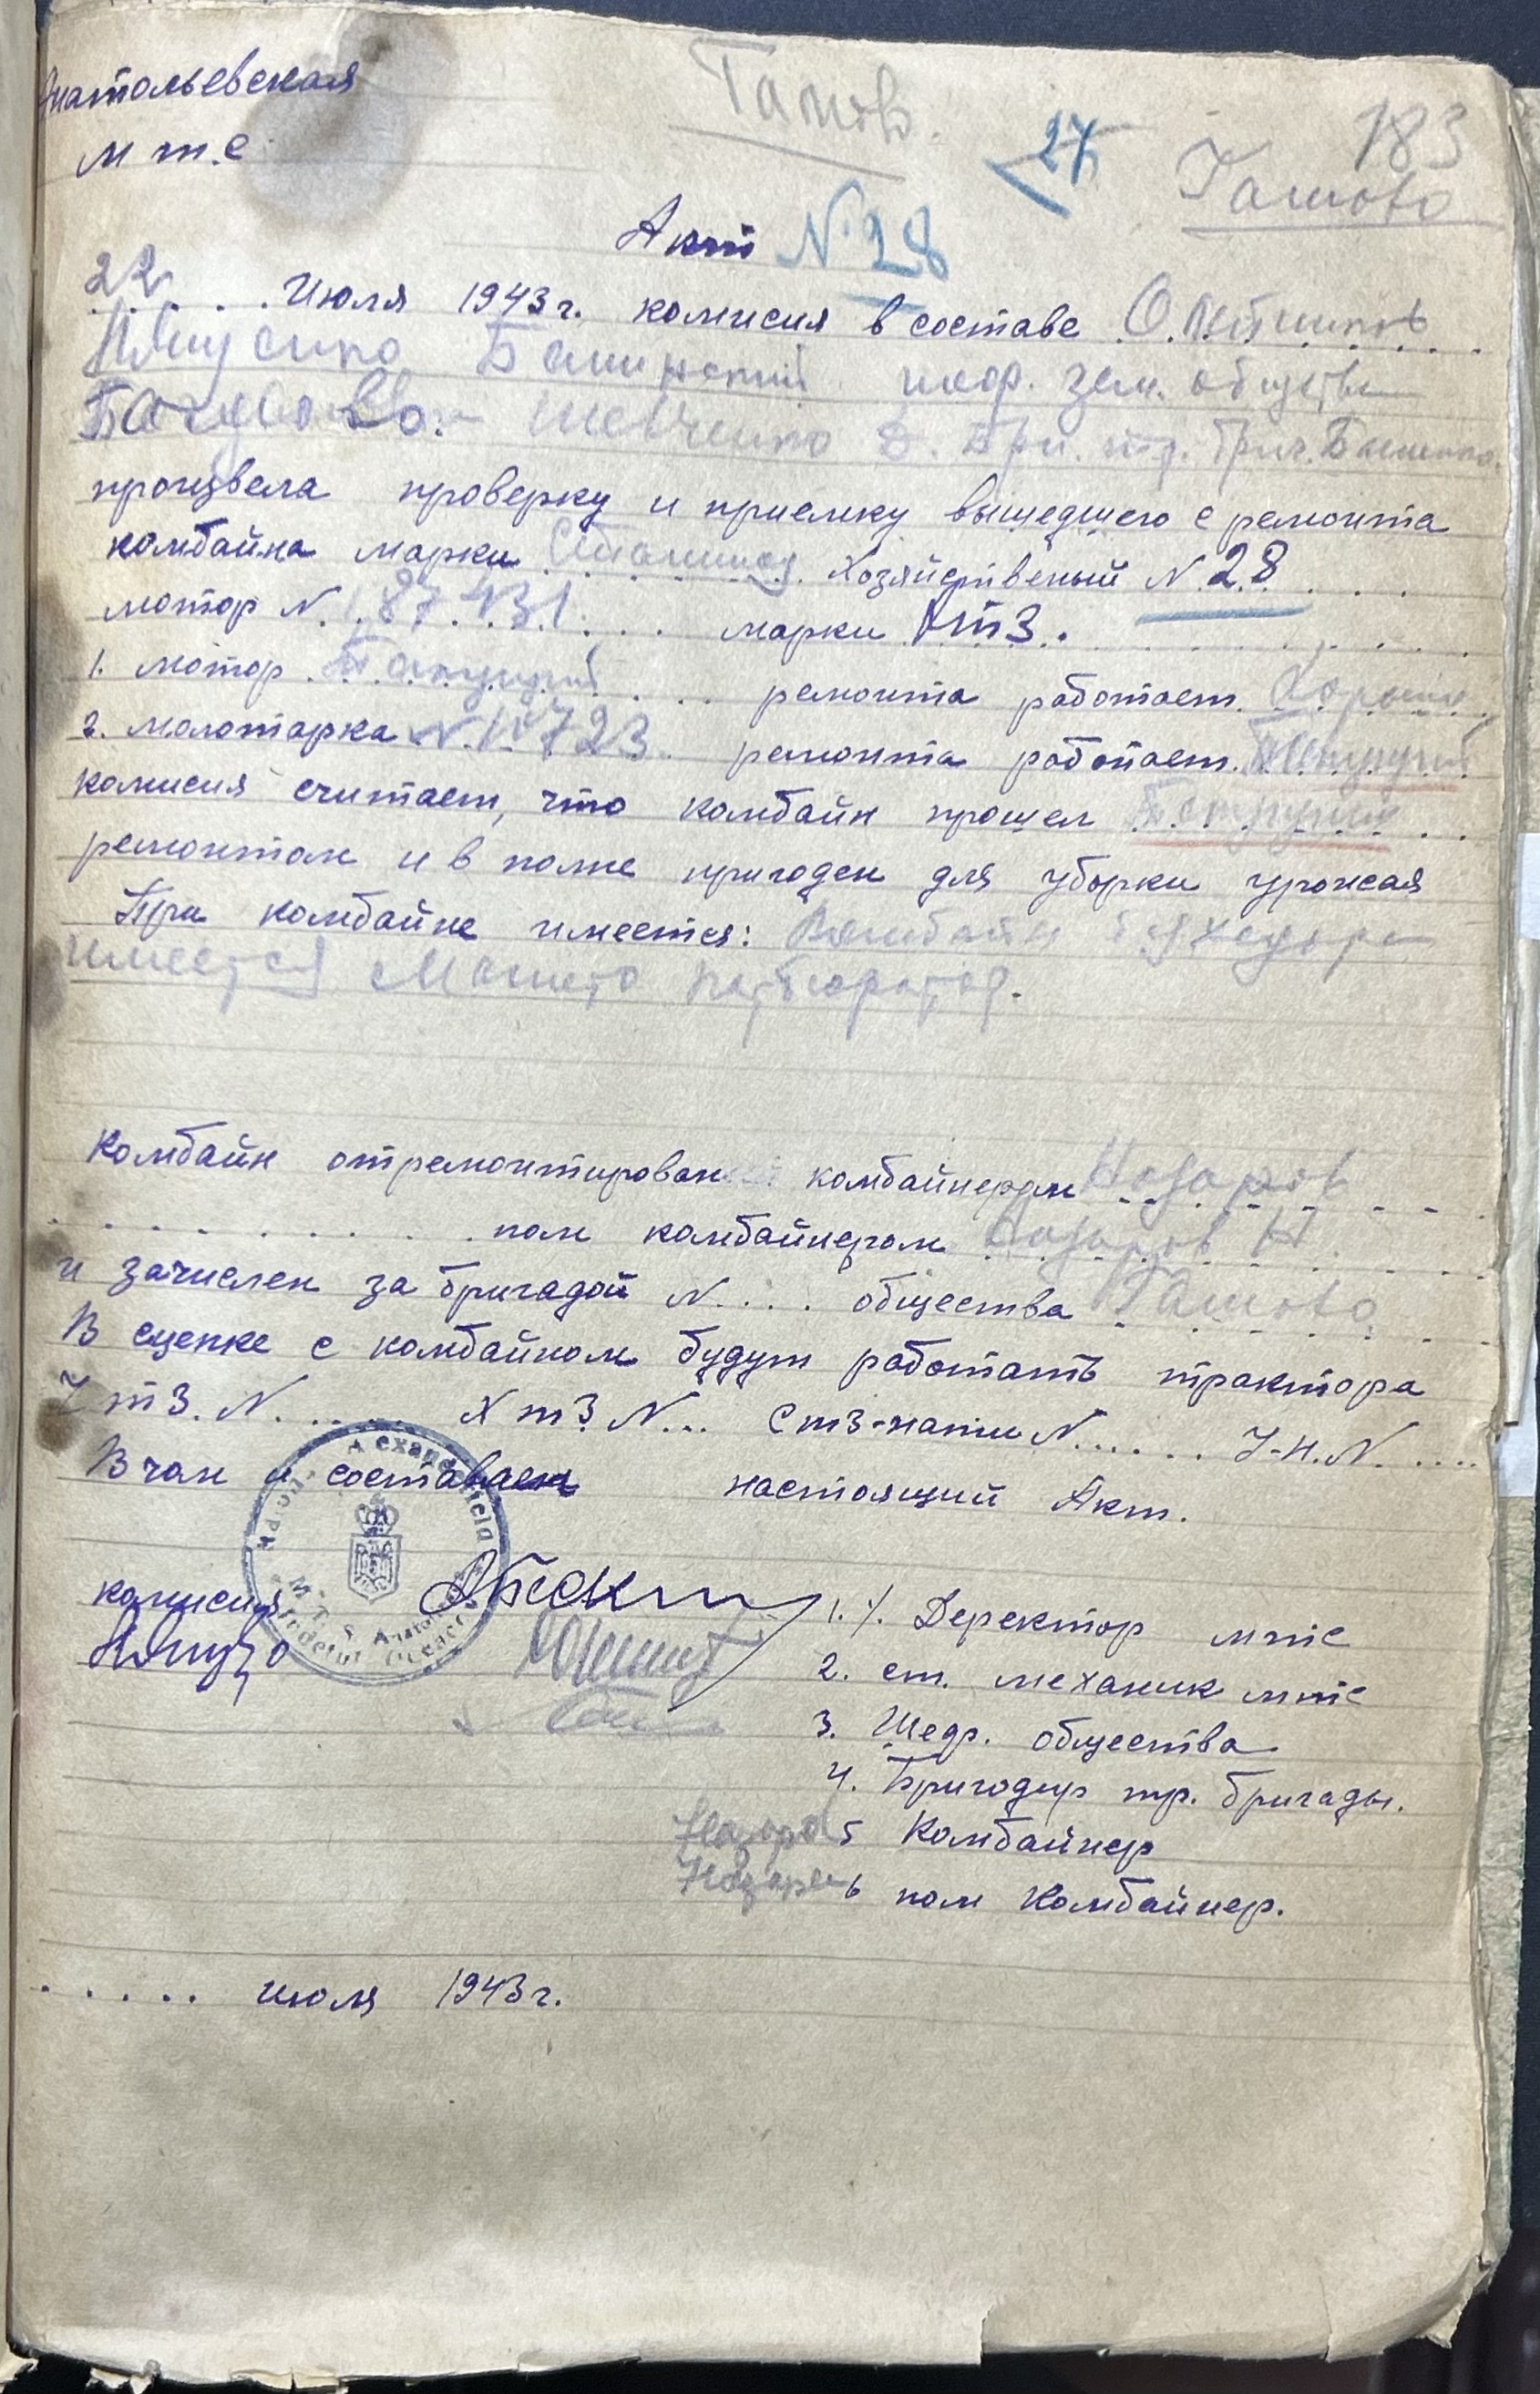 Анатольевская
М т.с
Гамов.
27
183
Гамова
Акт N 28
22 . . . Июля 1943 г. комисия в составе
шеф. зем. общества
Шевченко Д. Бри. тр. бриг.
произвела проверку и приемку вышедшего с ремонта
комбайна марки Сталинец. Хозяйственый N 28
мотор N. 187431 . . . марки УтЗ.
1. мотор . . . ремонта работает. Хорошо
2. молотарка N 10723 ремонта работает.
комисия считает, что комбайн прошел
ремонтом и в полне пригоден для уборки урожая
При комбайне имеется: Комбайн без
имеется
Комбайн отремонтирован комбайнером Назаров
. . . . . . . . . пом комбайнером Назаров Н
и зачислен за бригадой N. . . . общества Гамова
В сцепке с комбайном будут работать трактора
ЧтЗ. N. . . . . . ХтЗ N... СтЗ-нати N. . . . . . У-н. N. ....
В чом и составлен настоящий Акт.
комисия
1. Деректор мтс
2. ст. механик мтс
3. Шеф. общества
4. Бригодир тр. бригады.
Назаров 5 Комбайнер
6 пом Комбайнер.
. . . . . июля 1943 г.